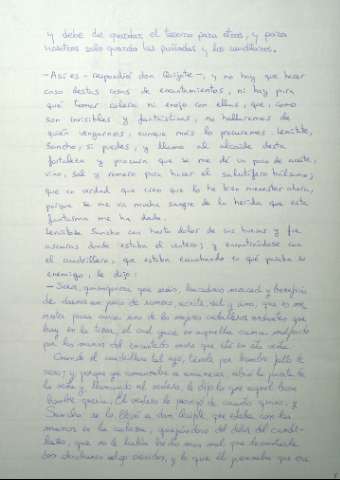 y debe de guardar el tesoro para otros, y para
nosotros solo guarda las puñadas y los candilazos.
—Así es —respondió don Quijote—, y no hay que hacer
caso destas cosas de encantamentos, ni hay para
qué tomar cólera ni enojo con ellas, que, como
son invisibles y fantásticas, no hallaremos de
quién vengarnos, aunque más lo procuremos. Levántate,
Sancho, si puedes, y llama al alcaide desta
fortaleza y procura que se me dé un poco de aceite,
vino, sal y romero para hacer el salutífero bálsamo;
que en verdad que creo que lo he bien menester ahora,
porque se me va mucha sangre de la herida que esta
fantasma me ha dado.
Levantóse Sancho con harto dolor de sus huesos y fue
ascuras donde estaba el ventero; y encontrándose con
el cuadrillero, que estaba escuchando en qué paraba su
enemigo, le dijo:
—Señor, quienquiera que seáis, hacednos merced y beneficio
de darnos un poco de romero, aceite, sal y vino, que es me-
nester para curar uno de los mejores caballeros andantes que
hay en la tierra, el cual yace en aquella cama malferido
por las manos del encantado moro que está en esta venta.
Cuando el cuadrillero tal oyó, túvole por hombre falto de
seso; y porque ya comenzaba a amanecer, abrió la puerta de
la venta y llamando al ventero, le dijo lo que aquel buen
hombre quería. El ventero le proveyó de cuanto quiso, y
Sancho se lo llevó a don Quijote que estaba con las
manos en la cabeza, quejándose del dolor del candi-
lazo, que no le había hecho más mal que levantarle
dos chichones algo crecidos, y lo que él pensaba que era